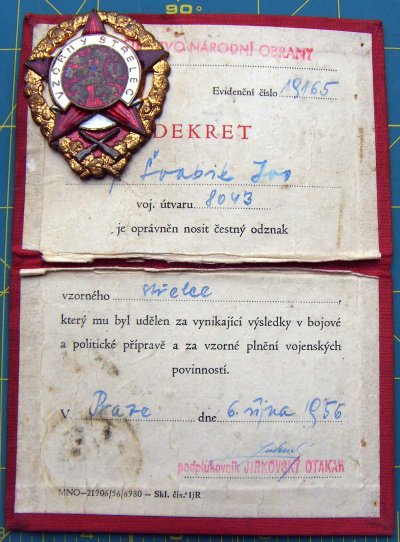 90°
VZORNÝ STŘELEC
VO NÁRODNÍ OBRANY
Evidenční číslo 19165
DEKRET
Švabik Ivo
voj. útvaru 8043
je oprávněn nosit čestný odznak
vzorného střelce,
který mu byl udělen za vynikající výsledky v bojové
a politické přípravě a za vzorné plnění vojenských
povinností.
V Praze dne 6. října 1956
podplukovník JIRKOVSKÝ OTAKAR
MNO—21906/56/6980 — Skl. čís. I/R